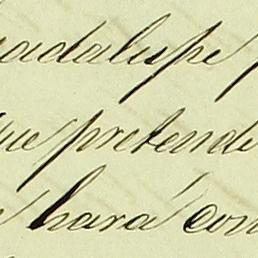 uadalupe p
ue pretende
hará con